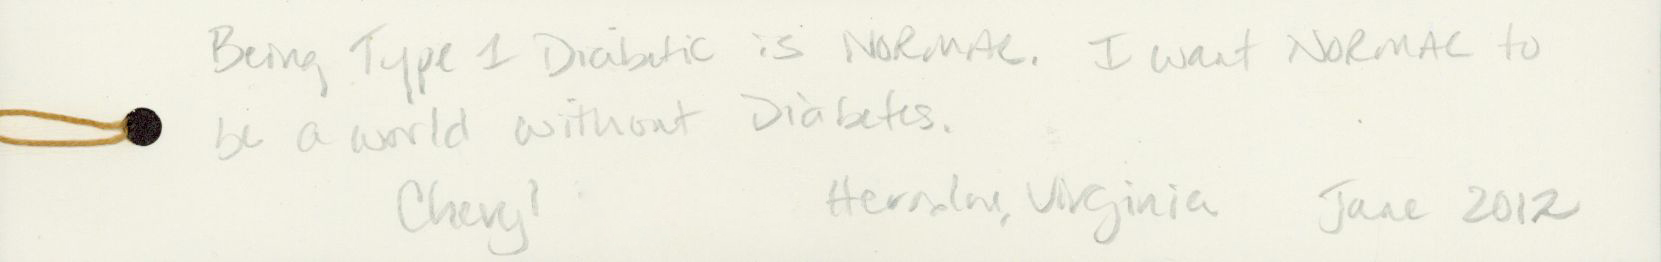 Being Type 1 Diabetic is NORMAL. I want NORMAL to
be a world without Diabetes.
Cheryl Herndon, Virginia June 2012